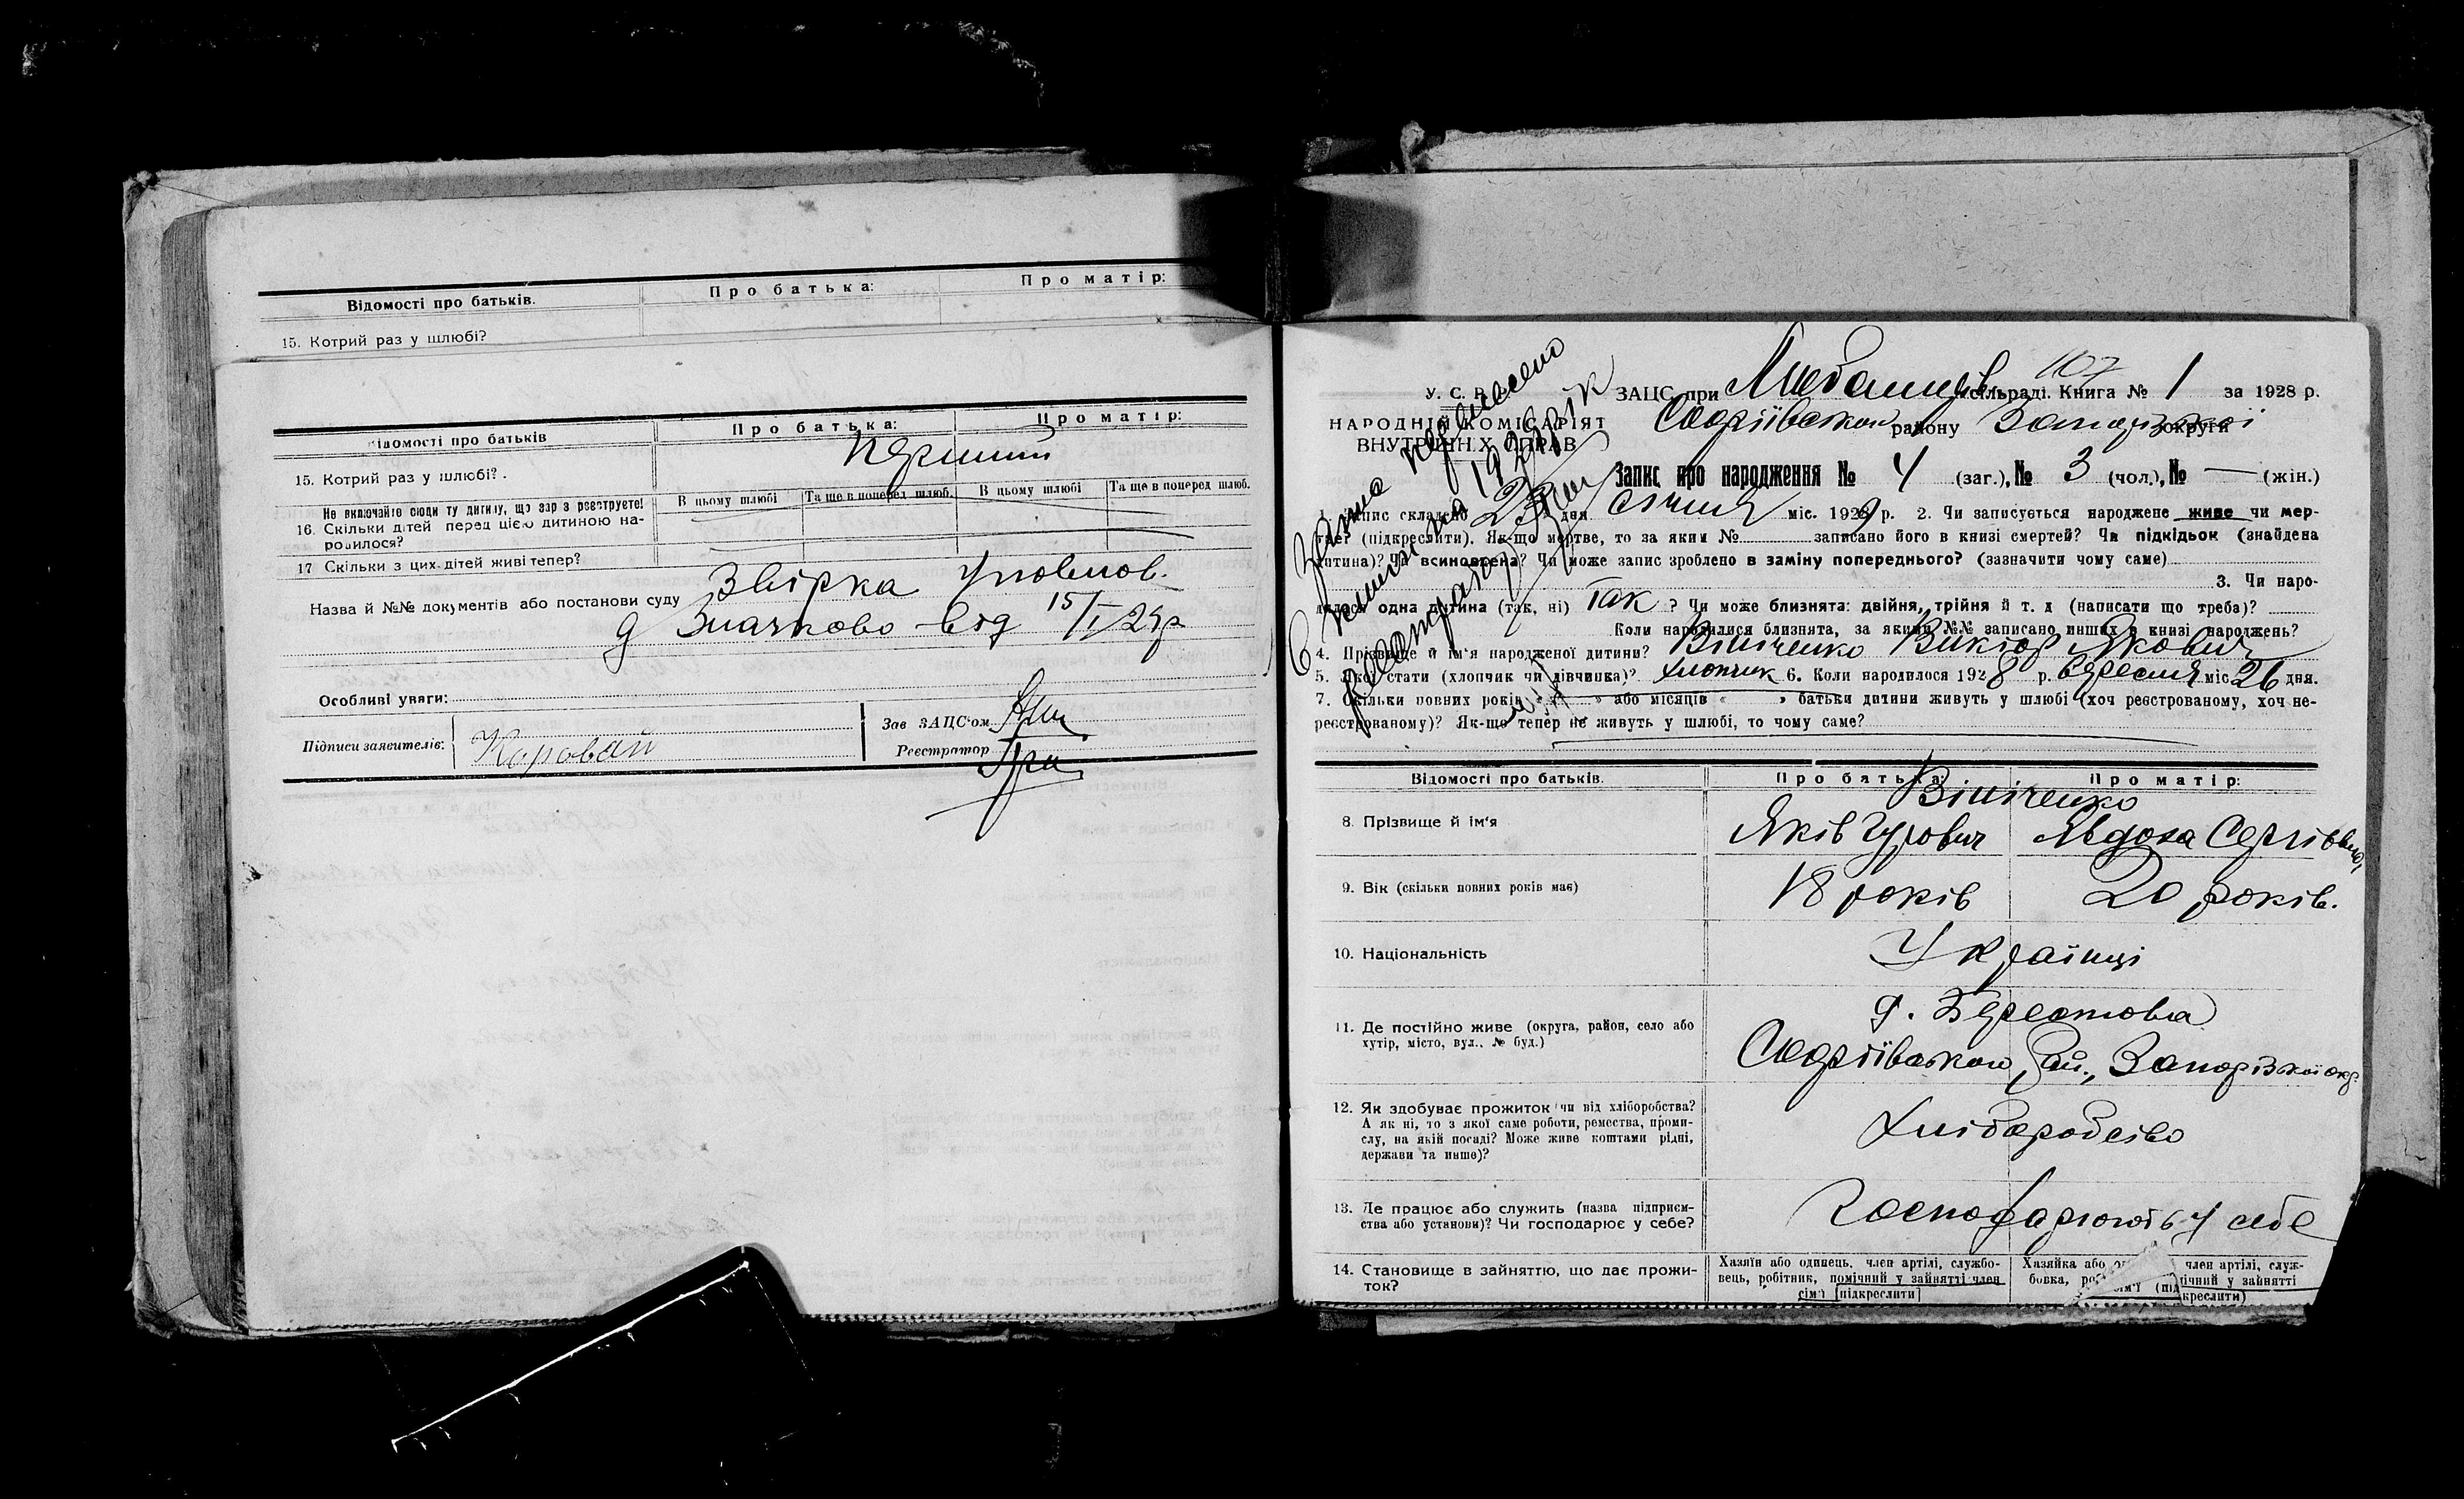 Відомості про батьків. Про батька: Про матір:
15. Котрий раз у шлюбі?
Відомості про батьків Про батька: Про матір:
15. Котрий раз у шлюбі?. перший
Не включайте сюди ту дитину, що зар з реєструєте!
16. Скільки дітей перед цією дитиною на-
родилося?
В цьому шлюбі Та ще в поперед. шлюб. В цьому шлюбі Та ще в поперед шлюб.
17 Скільки з цих дітей живі тепер?
Назва й №№ документів або постанови суду Звірка уповнов.
д Значково від 15/I 29р
Особливі уваги:
Підписи заявителів: Коровай
Зав ЗАЦС'ом
Реєстратор
У. С. Р. Р.
НАРОДНІЙ КОМІСАРІЯТ
ВНУТРІШН.Х СПРАВ
107
ЗАЦС при сільраді. Книга № 1 за 1928 р.
району Запорізької округи
Запис про народження № 4 (заг.), № 3 (чол.), № — (жін.)
1. Запис складено 23 дня січня міс. 1929 р. 2. Чи записується народжене живе чи мер-
тве? (підкреслити). Як-що мертве, то за яким № записано його в книзі смертей? Чи підкідьок (знайдена
дитина)? Чи всиновлена? Чи може запис зроблено в заміну попереднього? (зазначити чому саме)
3. Чи наро-
дилася одна дитина (так, ні) Так ? Чи може близнята: двійня, трійня й т. д (написати що треба)?
Коли народилися близнята, за якими №№ записано инших в книзі народжень?
4. Прізвище й ім'я народженої дитини? Вініченко Віктор Якович
5. Якої стати (хлопчик чи дівчинка)? хлопчик 6. Коли народилося 1928 р. вересня міс. 26 дня.
7. Скільки повних років « » або місяців « » батьки дитини живуть у шлюбі (хоч реєстрованому, хоч не-
реєстрованому)? Як-що тепер не живуть у шлюбі, то чому саме?
Відомості про батьків. Про батька: Про матір:
Вініченко
8. Прізвище й ім'я Яків Гурович Явдоха Сергіївна
9. Вік (скільки повних років має) 18 років 20 років.
10. Національність Українці
11. Де постійно живе (округа, район, село або
хутір, місто, вул., № буд.)
д. Берестова
рай., Запорізької окр.
12. Як здобуває прожиток чи від хліборобства?
А як ні, то з якої саме роботи, ремества, проми-
слу, на якій посаді? Може живе коштами рідні,
держави та инше)?
Хліборобство
13. Де працює або служить (назва підприєм-
ства або установи)? Чи господарює у себе?
Господарюють у себе
14. Становище в зайняттю, що дає прожи-
ток?
Хазяїн або одинець, член артілі, службо-
вець, робітник, помічний у зайнятті член
сім'ї [підкреслити]
Хазяйка або член артілі, служ-
бовка, помічний у зайнятті
сім'ї (підкреслити)